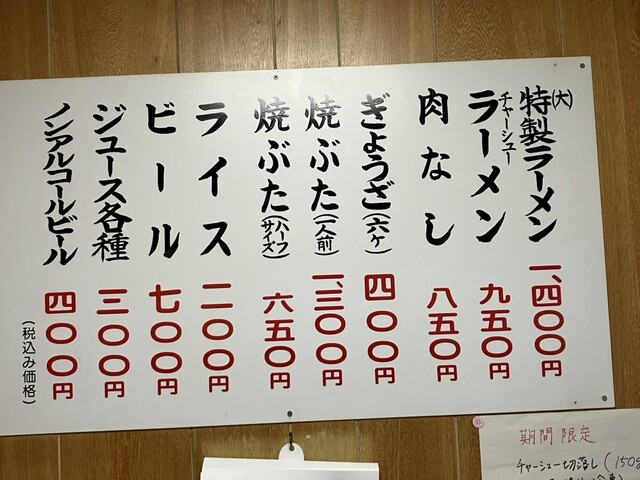 (大)特製ラーメン 一、四〇〇円
チャーシューラーメン 九五〇円
肉なし 八五〇円
ぎょうざ(六ケ) 四〇〇円
焼ぶた(一人前) 一、三〇〇円
焼ぶた(ハーフサイズ) 六五〇円
ライス 二〇〇円
ビール 七〇〇円
ジュース各種 三〇〇円
ノンアルコールビール 四〇〇円
(税込み価格)
期間限定
チャーシュー切落し(150g